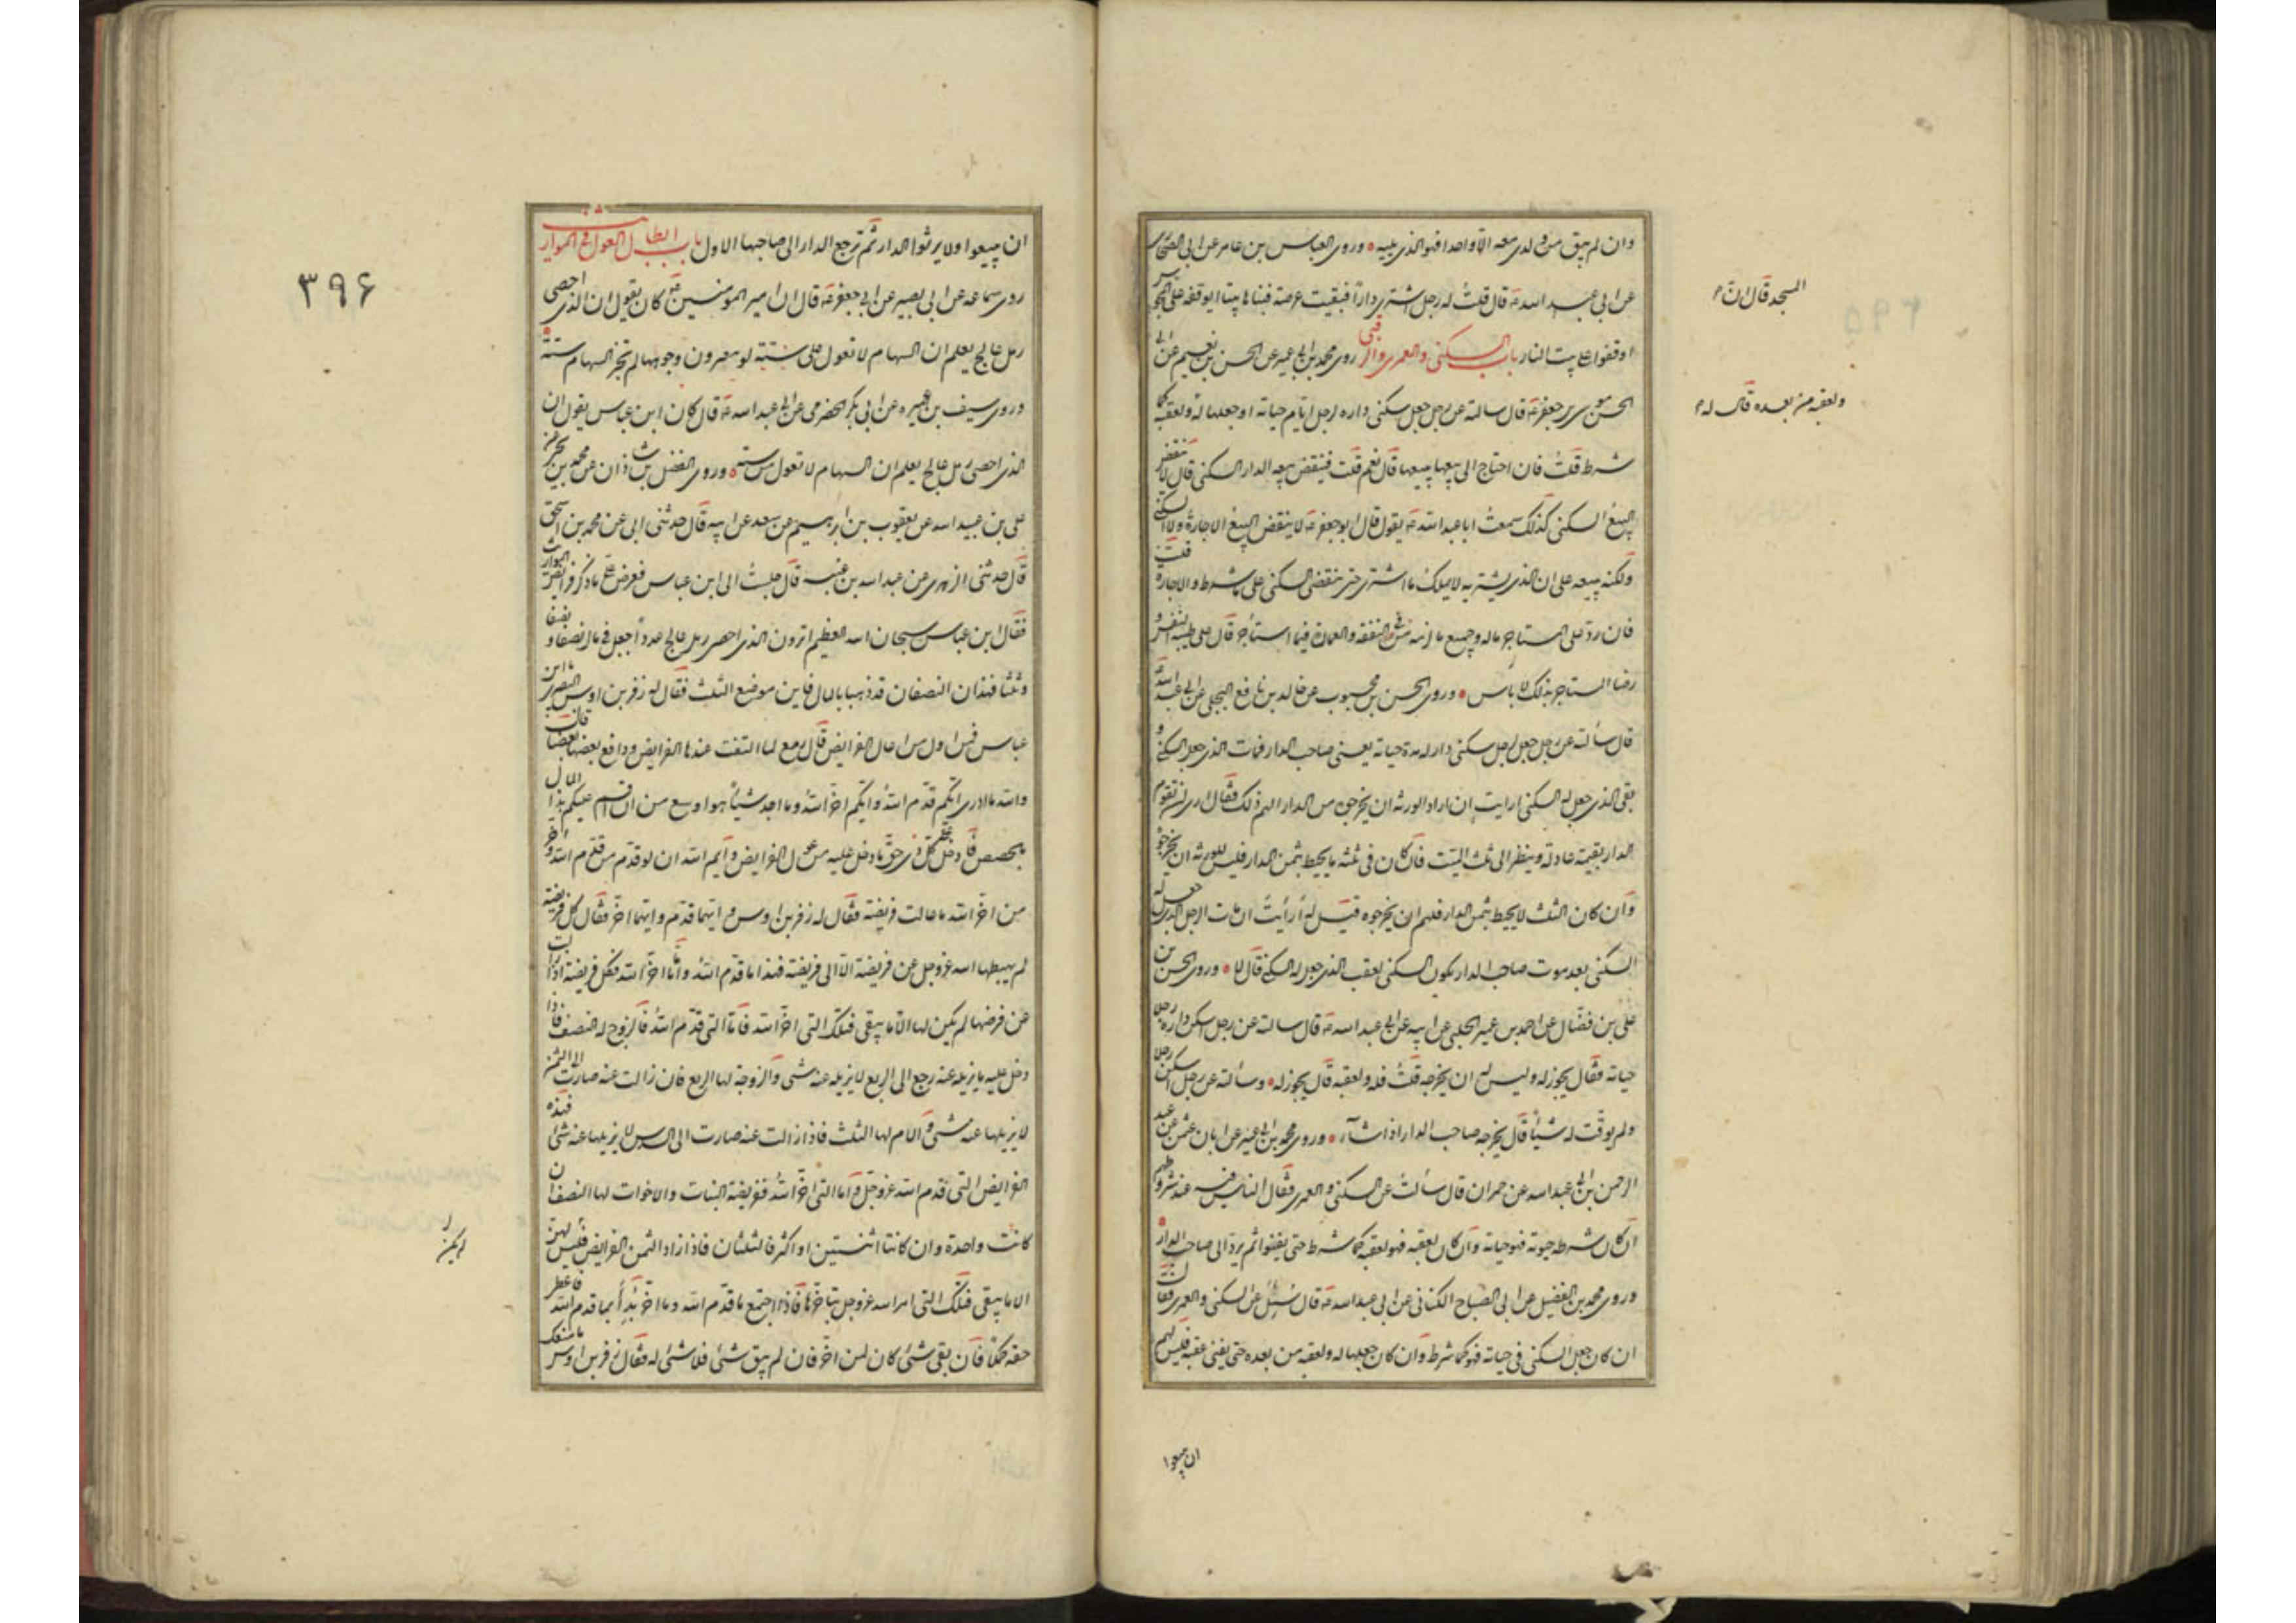 وان لم يبق من ولدى معه الا واحد فهو الذى يليه وروى العباس بن عامر عن ابى الصحارى
عن ابى عبد الله ع قال قلت له رجل اشترى دارا فبقيت عرصة فبناها بيتا ايوقفه على المجوس
المسجد قال ان م
اوقفوا على بيت النار باب السكنى والعمرى والرقبى روى محمد بن ابى عمير عن الحسن بن نعيم عن ابى
الحسن موسى بن جعفر ع قال سالته عن رجل جعل سكنى داره لرجل ايام حياته او جعلها له ولعقبه كما
ولعقبه من بعده قال له م
شرط قلت فان احتاج الى بيعها يبيعها قال نعم قلت فينقض بيعه الدار السكنى قال لا ينقض
البيع السكنى كذلك سمعت ابا عبد الله ع يقول قال ابو جعفر ع لا ينقض البيع الاجارة ولا السكنى
ولكنه يبيعه على ان الذى يشتريه لا يملك ما اشترى حتى تنقضى السكنى على ما شرط والاجارة قلت
فان رد على المستاجر ماله وجميع ما لزمه من النفقة والعمارة فيما استأجر قال على طيبة النفس و
رضا المستاجر بذلك لا باس وروى الحسن بن محبوب عن خالد بن نافع البجلى عن ابى عبد الله ع
قال سألته عن رجل جعل لرجل سكنى دار له مدة حياته يعنى صاحب الدار فمات الذى جعل السكنى و
بقى الذى جعل له السكنى ارايت ان اراد الورثه ان يخرجوه من الدار الهم ذلك فقال ارى ان تقوم
الدار بقيمة عادلة وينظر الى ثلث الميت فان كان فى ثلثه ما يحيط بثمن الدار فليس للورثه ان يخرجوه
وان كان الثلث لا يحيط بثمن الدار فلهم ان يخرجوه قيل له أرأيت ان مات الرجل الذى جعل له
السكنى بعد موت صاحب الدار يكون السكنى لعقب الذى جعل له السكنى قال لا وروى الحسن بن
على بن فضال عن احمد بن عمير الحلبى عن ابيه عن ابى عبد الله ع قال سالته عن رجل اسكن داره رجلا
حياته فقال يجوز له وليس له ان يخرجه قلت فله ولعقبه قال يجوز له وسألته عن رجل اسكن رجلا
ولم يوقت له شيئا قال يخرجه صاحب الدار اذا شآء وروى محمد بن ابى عمير عن ابان بن عثمن عن عبد
الرحمن بن ابى عبد الله عن حمران قال سألته عن السكنى والعمرى فقال الناس فيه عند شروطهم
ان كان شرطه حيوته فهو حياته وان كان لعقبه فهو لعقبه كما شرط حتى يفنوا ثم يرد الى صاحب الدار
وروى محمد بن الفضيل عن ابى الصباح الكنانى عن ابى عبد الله ع قال سئل عن السكنى والعمرى فقال
ان كان جعل السكنى فى حياته فهو كما شرط وان كان جعلها له ولعقبه من بعده حتى يفنى عقبه فليس لهم
ان يبيعوا
ان يبيعوا ولا يورثوا الدار ثم ترجع الدار الى صاحبها الاول باب ابطال العول فى المواريث
٣٩۶
روى سماعه عن ابى بصير عن ابى جعفر ع قال ان امير المومنين ع كان يقول ان الذى احصى
رمل عالج يعلم ان السهام لا تعول على ستة لو يبصرون وجوهها لم تجز السهام ستة
وروى سيف بن عميره عن ابى بكر الحضرمى عن ابى عبد الله ع قال كان ابن عباس يقول ان
الذى احصى رمل عالج يعلم ان السهام لا تعول من ستة وروى الفضل بن شاذان عن محمد بن يحيى عن
على بن عبيد الله عن يعقوب بن ابرهيم بن سعد عن ابيه قال حدثنى ابى عن محمد بن اسحق
قال حدثنى الزهرى عن عبد الله بن عتبه قال جلست الى ابن عباس فعرض على ما ذكر فرايض المواريث
فقال ابن عباس سبحان الله العظيم اترون الذى احصى رمل عالج عددا جعل فى مال نصفا و نصفا
وثلثا فهذان النصفان قد ذهبا بالمال فاين موضع الثلث فقال له زفر بن اوس البصرى يا ابن
عباس فمن اول من اعال الفرايض قال رمع لما التفت عنده الفرايض ودافع بعضها بعضا قال
والله ما ادرى ايكم قدم الله وايكم اخر الله وما اجد شيئا هو اوسع من ان اقسم عليكم هذا المال
بالحصص فادخل على كل ذى حق ما دخل عليه من عول الفرايض وايم الله ان لو قدم من قدم الله واخر
من اخر الله ما عالت فريضة فقال له زفر بن اوس و ايتها قدم وايتها اخر فقال كل فريضة
لم يهبطها الله عز وجل عن فريضة الا الى فريضة فهذا ما قدم الله واما ما اخر الله فكل فريضة اذا زالت
عن فرضها لم يكن لها الا ما يبقى فتلك التى اخر الله فاما التى قدم الله فالزوج له النصف فاذا
دخل عليه ما يزيله عنه رجع الى الربع لا يزيله عنه شى والزوجة لها الربع فان زالت عنه صارت الى الثمن
لا يزيلها عنه شى والام لها الثلث فاذا زالت عنه صارت الى السدس لا يزيلها عنه شئ فهذه
الفرايض التى قدم الله عز وجل واما التى اخر الله ففريضة البنات والاخوات لها النصف ان
كانت واحدة وان كانتا اثنتين او اكثر فالثلثان فاذا ازاد الثمن الفرايض فليس لهن
لم يكن
الا ما يبقى فتلك التى امر الله عز وجل بتاخرها فاذا اجتمع ما قدم الله وما اخر بدأ بما قدم الله فاعطى
حقه كملا فان بقى شئ كان لمن اخر فان لم يبق شئ فلا شئ له فقال زفر بن اوس ما منعك